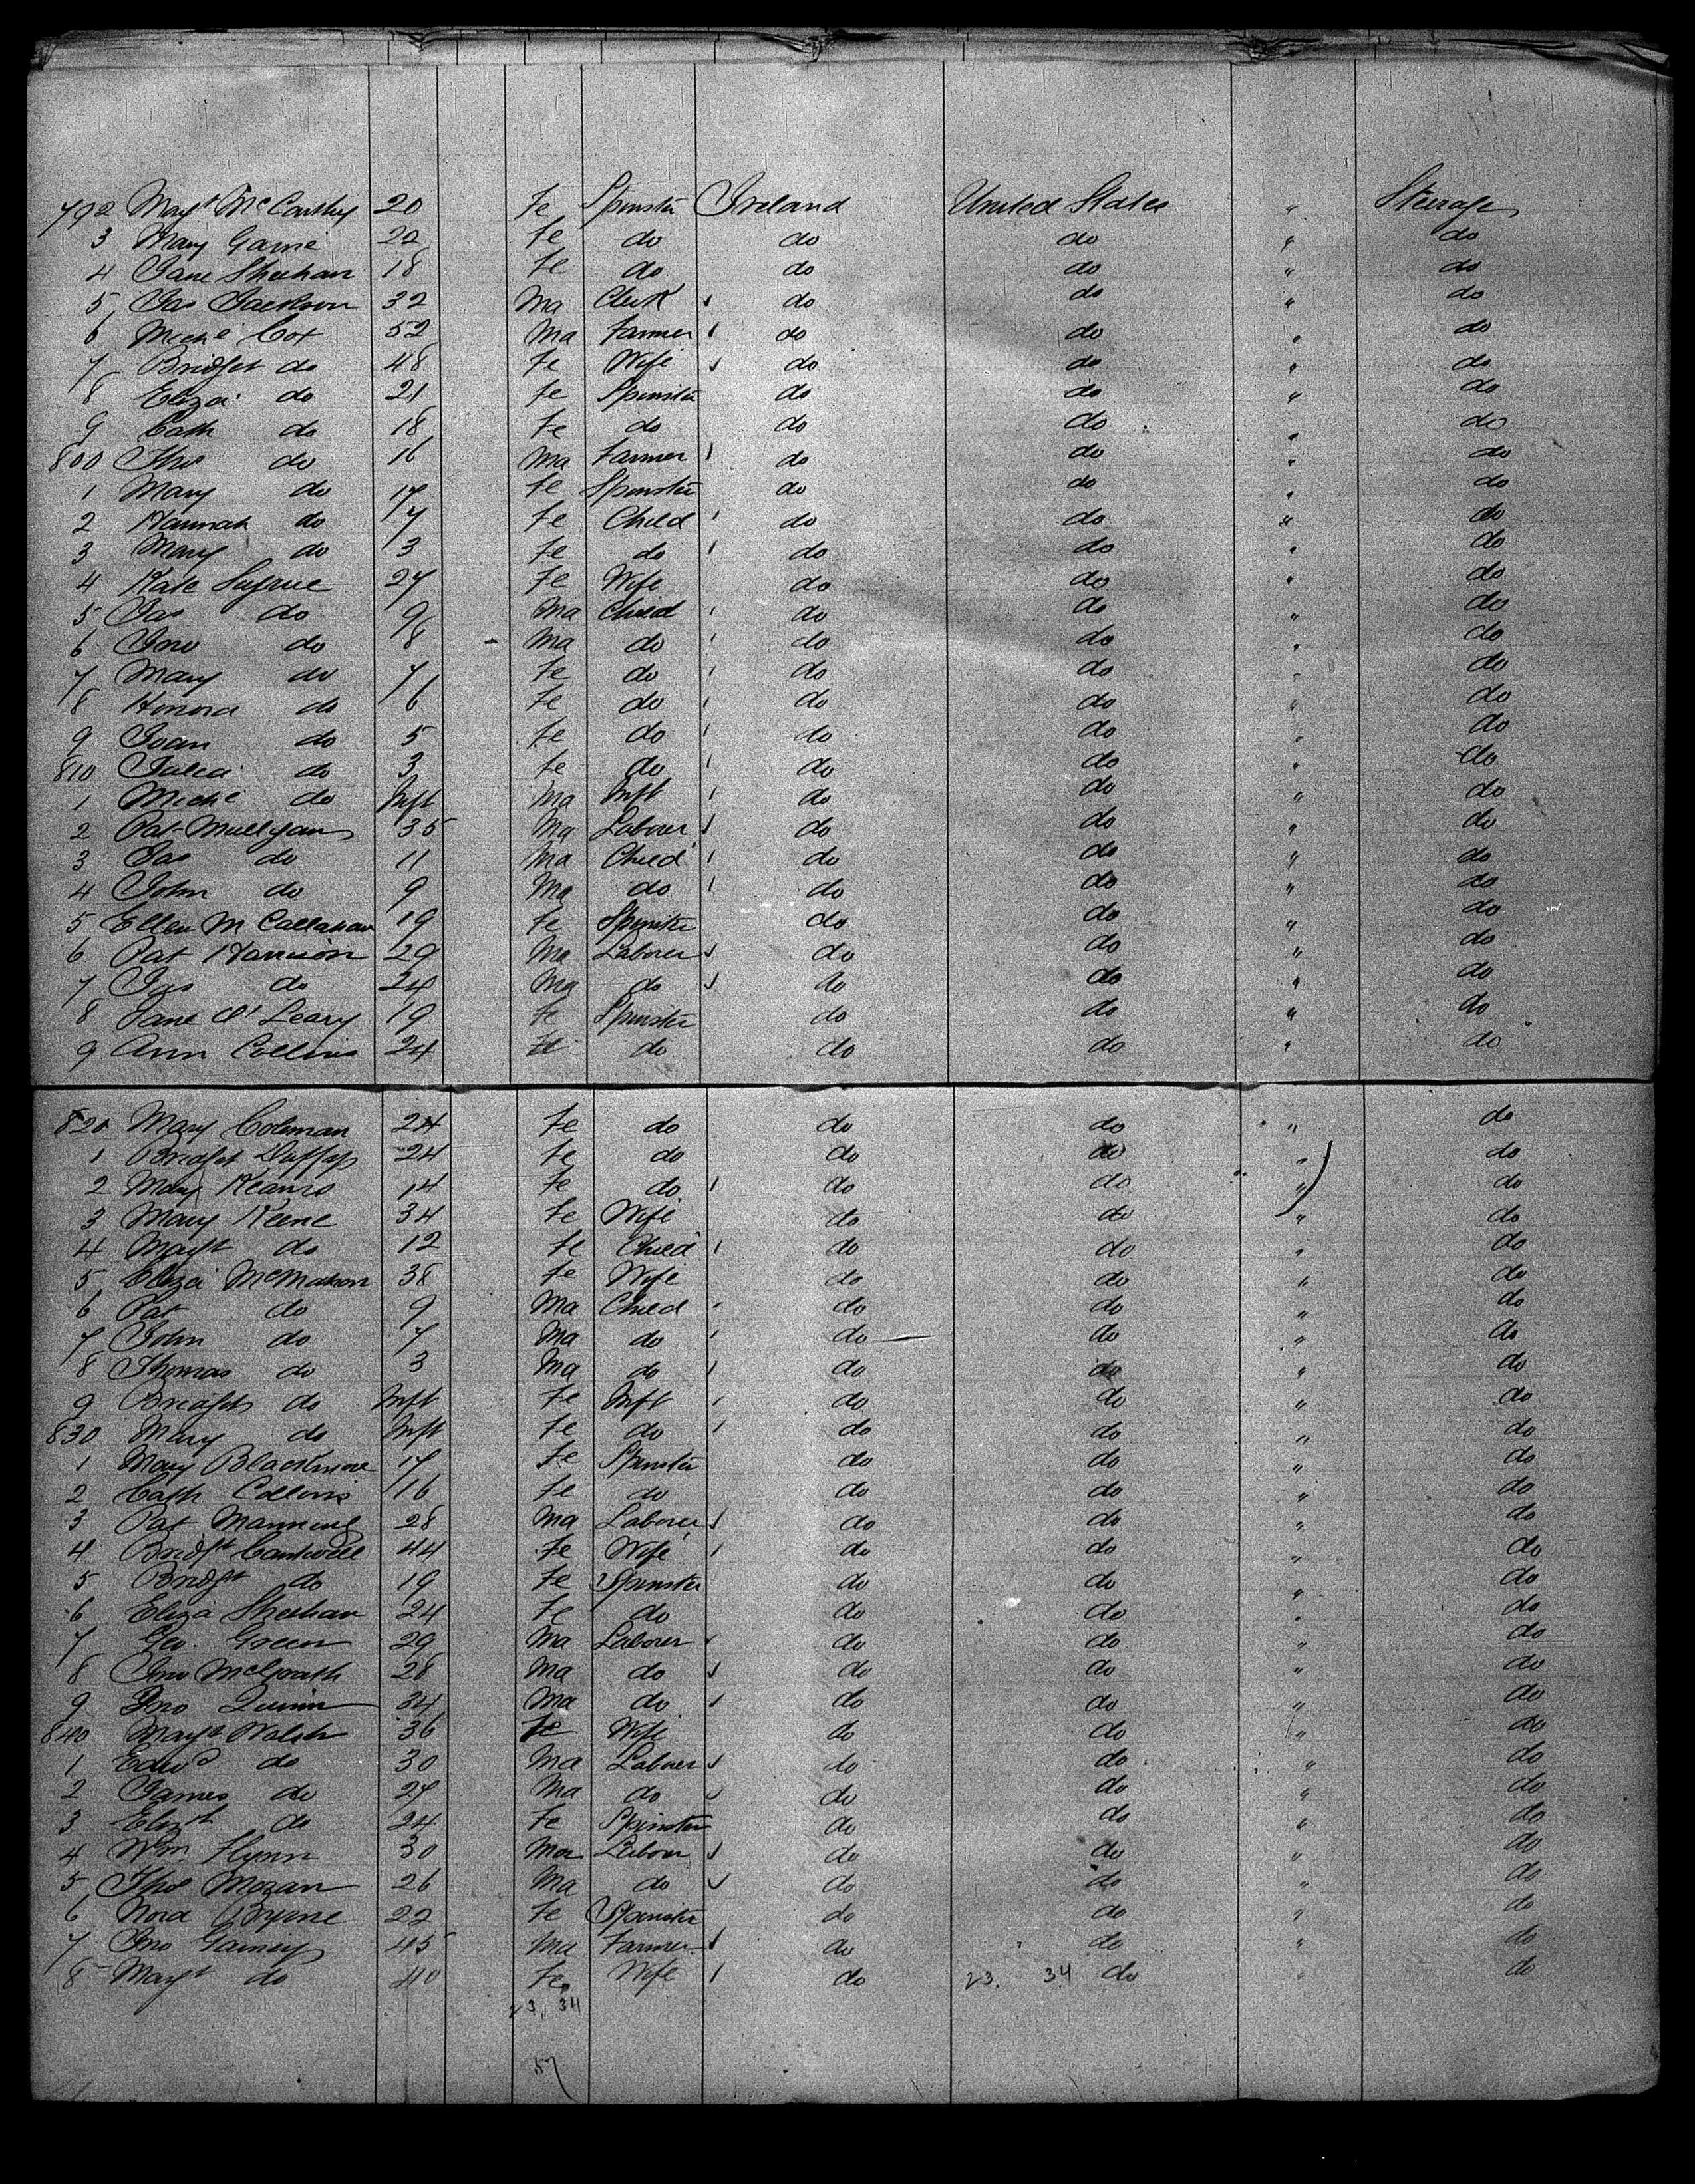 792 Mayt McCarthy 20 Fe Spinster Ireland United States " Steerage
3 Mary Game 22 Fe do do do " do
4 Jane Sheehan 18 Fe do do do " do
5 Jas Jackson 32 Ma Clerk do do " do
6 Michl Cox 52 Ma Farmer do do " do
7 Bridget do 48 Fe Wife do do " do
8 Eliza do 21 Fe Spinster do do " do
9 Cath do 18 Fe do do do " do
800 Thos do 16 Ma Farmer do do " do
1 Mary do 17 Fe Spinster do do " do
2 Hannah do 7 Fe Child do do " do
3 Mary do 3 Fe do do do " do
4 Kate Sugrue 27 Fe Wife do do " do
5 Jas do 9 Ma Child do do " do
6 Jno do 8 Ma do do do " do
7 Mary do 7 Fe do do do " do
8 Honora do 6 Fe do do do " do
9 Joan do 5 Fe do do do " do
810 Julia do 3 Fe do do do " do
1 Michl do Inft Ma Inft do do " do
2 Pat Mulligan 35 Ma Laborer do do " do
3 Jas do 11 Ma Child do do " do
4 John do 9 Ma do do do " do
5 Ellen M Callahan 19 Fe Spinster do do " do
6 Pat Harrison 29 Ma Laborer do do " do
7 Jas do 24 Ma do do do " do
8 Jane O'Leary 19 Fe Spinster do do " do
9 Ann Collins 24 Fe do do do " do
820 Mary Coleman 24 Fe do do do " do
1 Bridget Duffy 24 Fe do do do " do
2 Mary Kearns 14 Fe do do do " do
3 Mary Keene 34 Fe Wife do do " do
4 Mayt do 12 Fe Child do do " do
5 Eliza McMahon 38 Fe Wife do do " do
6 Pat do 9 Ma Child do do " do
7 John do 7 Ma do do do " do
8 Thomas do 3 Ma do do do " do
9 Bridget do Inft Fe Inft do do " do
830 Mary do Inft Fe do do do " do
1 Mary Blackmore 17 Fe Spinster do do " do
2 Cath Collins 16 Fe do do do " do
3 Pat Manning 28 Ma Laborer do do " do
4 Bridgt Cantwell 44 Fe Wife do do " do
5 Bridgt do 19 Fe Spinster do do " do
6 Eliza Sheehan 24 Fe do do do " do
7 Geo. Green 29 Ma Laborer do do " do
8 Jno McGrath 28 Ma do do do " do
9 Jno Quinn 34 Ma do do do " do
840 Mayt Walsh 36 Fe Wife do do " do
1 Edwd do 30 Ma Laborer do do " do
2 James do 27 Ma do do do " do
3 Elizth do 24 Fe Spinster do do " do
4 Wm. Flynn 30 Ma Labour do do " do
5 Thos Mozan 26 Ma do do do " do
6 Nora Byrne 22 Fe Spinster do do " do
7 Jno Gainey 45 Ma Farmer do do " do
8 Mayt do 40 Fe Wife do 23. 34 do " do
23. 34
57